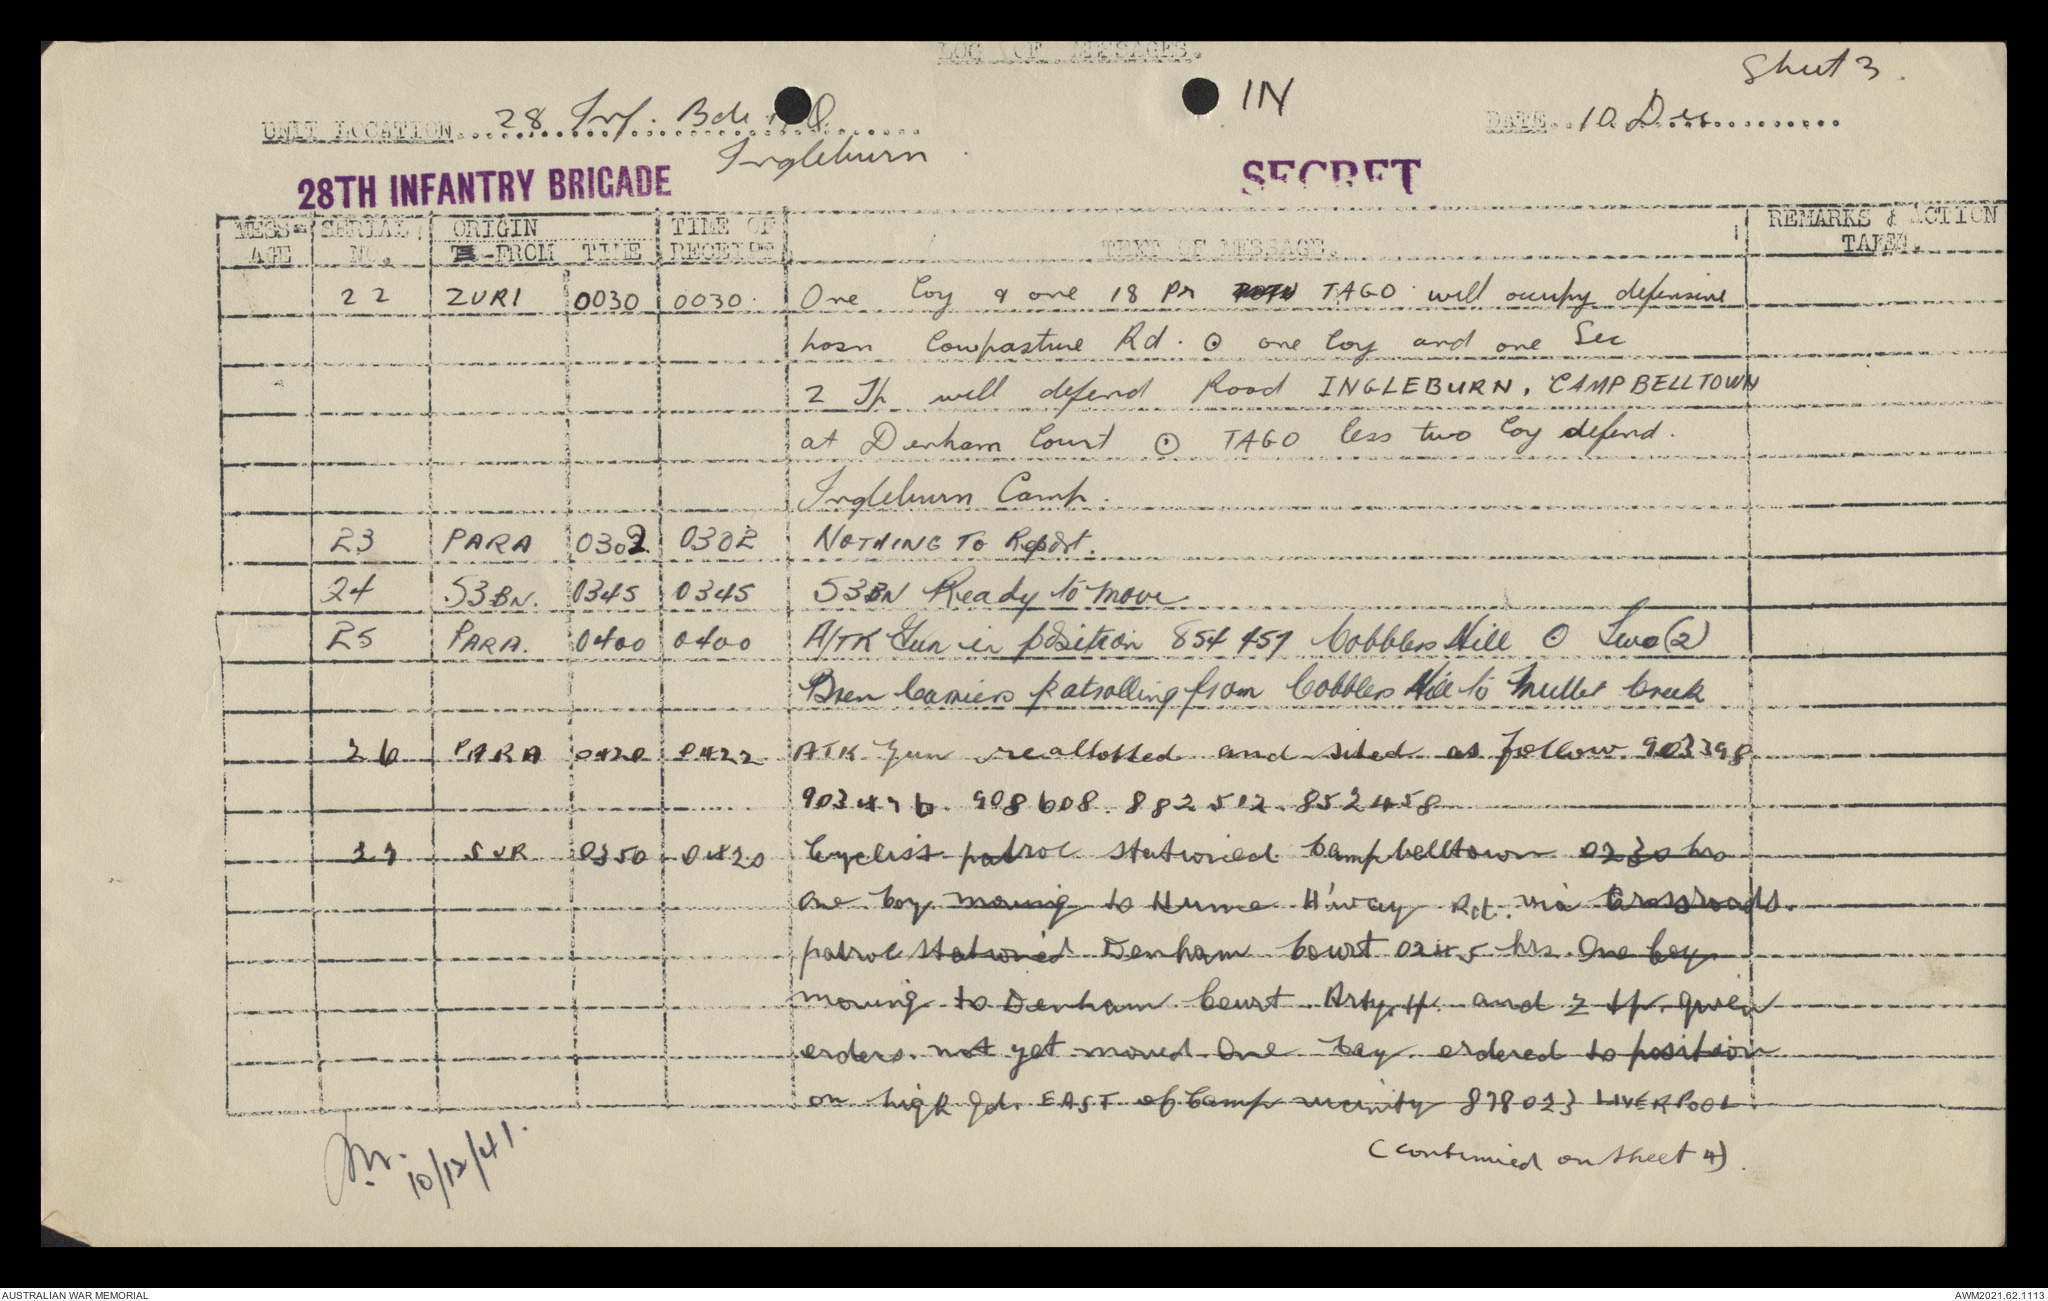 LOG OF MESSAGES.
Sheet 3.
IN
UNIT LOCATION 28 Inf. Bde H.Q. DATE 10 Dec
Ingleburn.
28TH INFANTRY BRIGADE SECRET
MESS-AGE SERIAL NO. ORIGIN FROM TIME TIME OF RECEIPT TEXT OF MESSAGE. REMARKS & ACTION TAKEN.
22 ZURI 0030 0030. One Coy & one 18 Pr TAGO will occupy defensive
posn Cowpasture Rd. ⊙ one Coy and one Sec
2 Tp will defend Road INGLEBURN, CAMPBELLTOWN
at Denham Court ⊙ TAGO less two Coy defend.
Ingleburn Camp.
23 PARA 0302 0302 NOTHING TO Report.
24 53 BN. 0345 0345 53 BN Ready to move
25 PARA. 0400 0400 A/TK Gun in position 854457 Cobblers Hill ⊙ Two (2)
Bren Carriers patrolling from Cobblers Hill to Mullet Creek
26 PARA 0420 0422 ATK Gun reallotted and sited as follow. 903398
903476. 908608. 882512. 852458
27 SUR 0350 0420 Cyclist patrol stationed Campbelltown 0230 hrs
One Coy moving to Hume H'way Rd. via Crossroads.
patrol stationed Denham Court 0245 hrs. One Coy
moving to Denham Court Arty. tp. and 2 tp. given
orders. not yet moved. One Coy. ordered to position
on high gd. EAST of Camp vicinity 878023 LIVERPOOL.
(continued on sheet 4).
10/12/41.
AUSTRALIAN WAR MEMORIAL AWM2021.62.1113